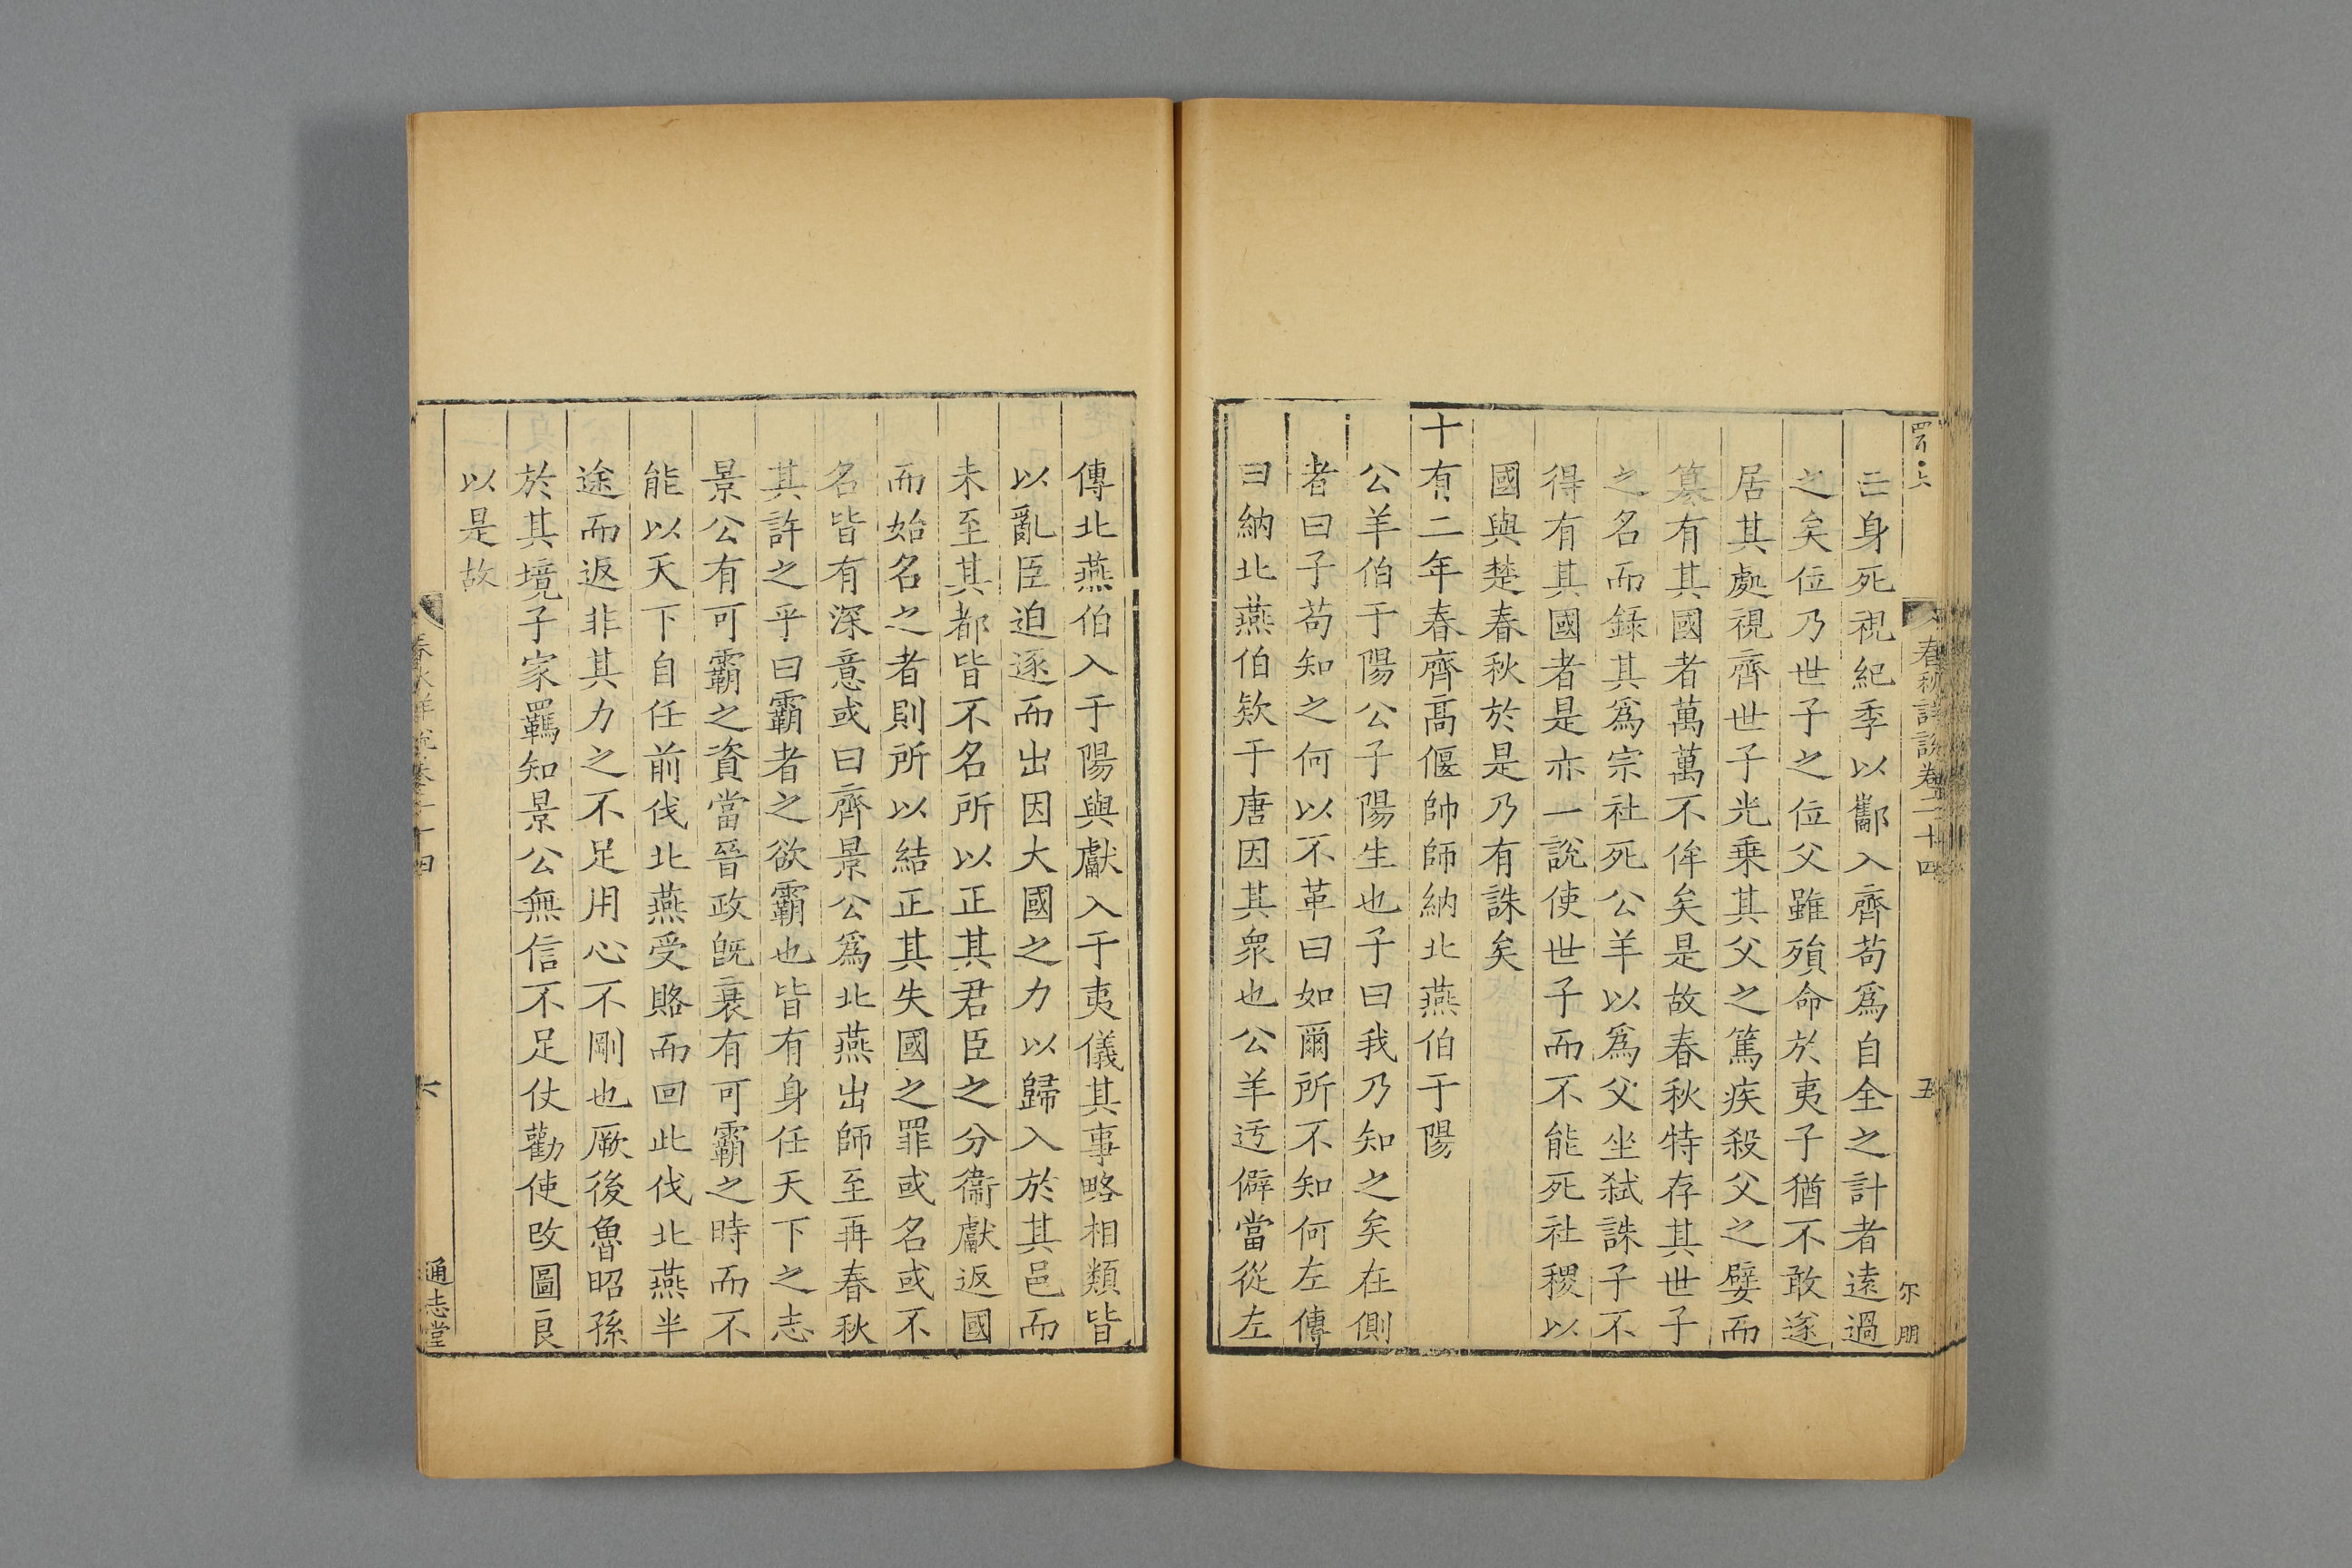 春秋詳說卷二十四
五
亡身死視紀季以酅入齊苟爲自全之計者遠過
之矣位乃世子之位父雖殞命於夷子猶不敢遂
居其處視齊世子光乗其父之篤疾殺父之嬖而
篡有其國者萬萬不侔矣是故春秋特存其世子
之名而錄其爲宗社死公羊以爲父坐弑誅子不
得有其國者是亦一說使世子而不能死社稷以
國與楚春秋於是乃有誅矣
十有二年春齊髙偃帥師納北燕伯于陽
公羊伯于陽公子陽生也子曰我乃知之矣在側
者曰子苟知之何以不革曰如爾所不知何左傳
曰納北燕伯欵于唐因其衆也公羊迃僻當從左
傳北燕伯入于陽與獻入于夷儀其事略相類皆
以亂臣迫逐而出因大國之力以歸入於其邑而
未至其都皆不名所以正其君臣之分衞獻返國
而始名之者則所以結正其失國之罪或名或不
名皆有深意或曰齊景公爲北燕出師至再春秋
其許之乎曰霸者之欲霸也皆有身任天下之志
景公有可霸之資當晉政旣衰有可霸之時而不
能以天下自任前伐北燕受賂而回此伐北燕半
途而返非其力之不足用心不剛也厥後魯昭孫
於其境子家羈知景公無信不足仗勸使改圖良
以是故
春秋詳說卷二十四
六
通志堂